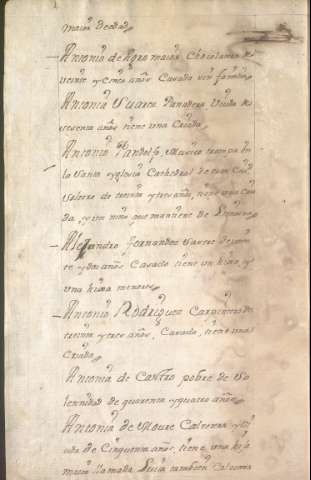 maior de edad
Antonio de Agra maior Chocolatero de
veinte y cinco años Casado sin familia
Antonia Suarez Panadera Viuda de
sesenta años tiene una Criada
Antonio Pandolfo, Musico trompa en
la Santa Yglesia Cathedral de esta Ciu.d
soltero de treinta y tres años,
y un niño que mantiene de
Alejandro Fernandez Sastre de
te y dos años Casado tiene un hijo, y
una hija menores
Antonio Rodriguez Carpintero de
treinta y tres años, Casado, tiene una
Criada
Antonia de Castro pobre de So
lennidad de quarenta y quatro años
Antonia de Moure Calcetera y Viu
da de Cinquenta años, tiene una hija
maior llamada Lucia tambien Calcetera